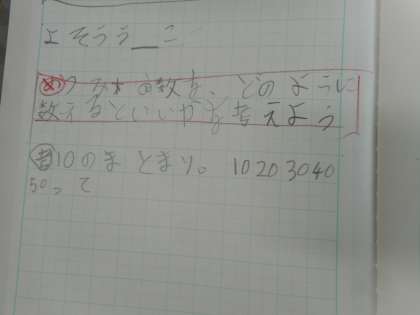 よそうう_こ
め つみ木の数を、どのように
数えるといいかを考えよう
考 10のまとまり。 10 20 30 40
50って